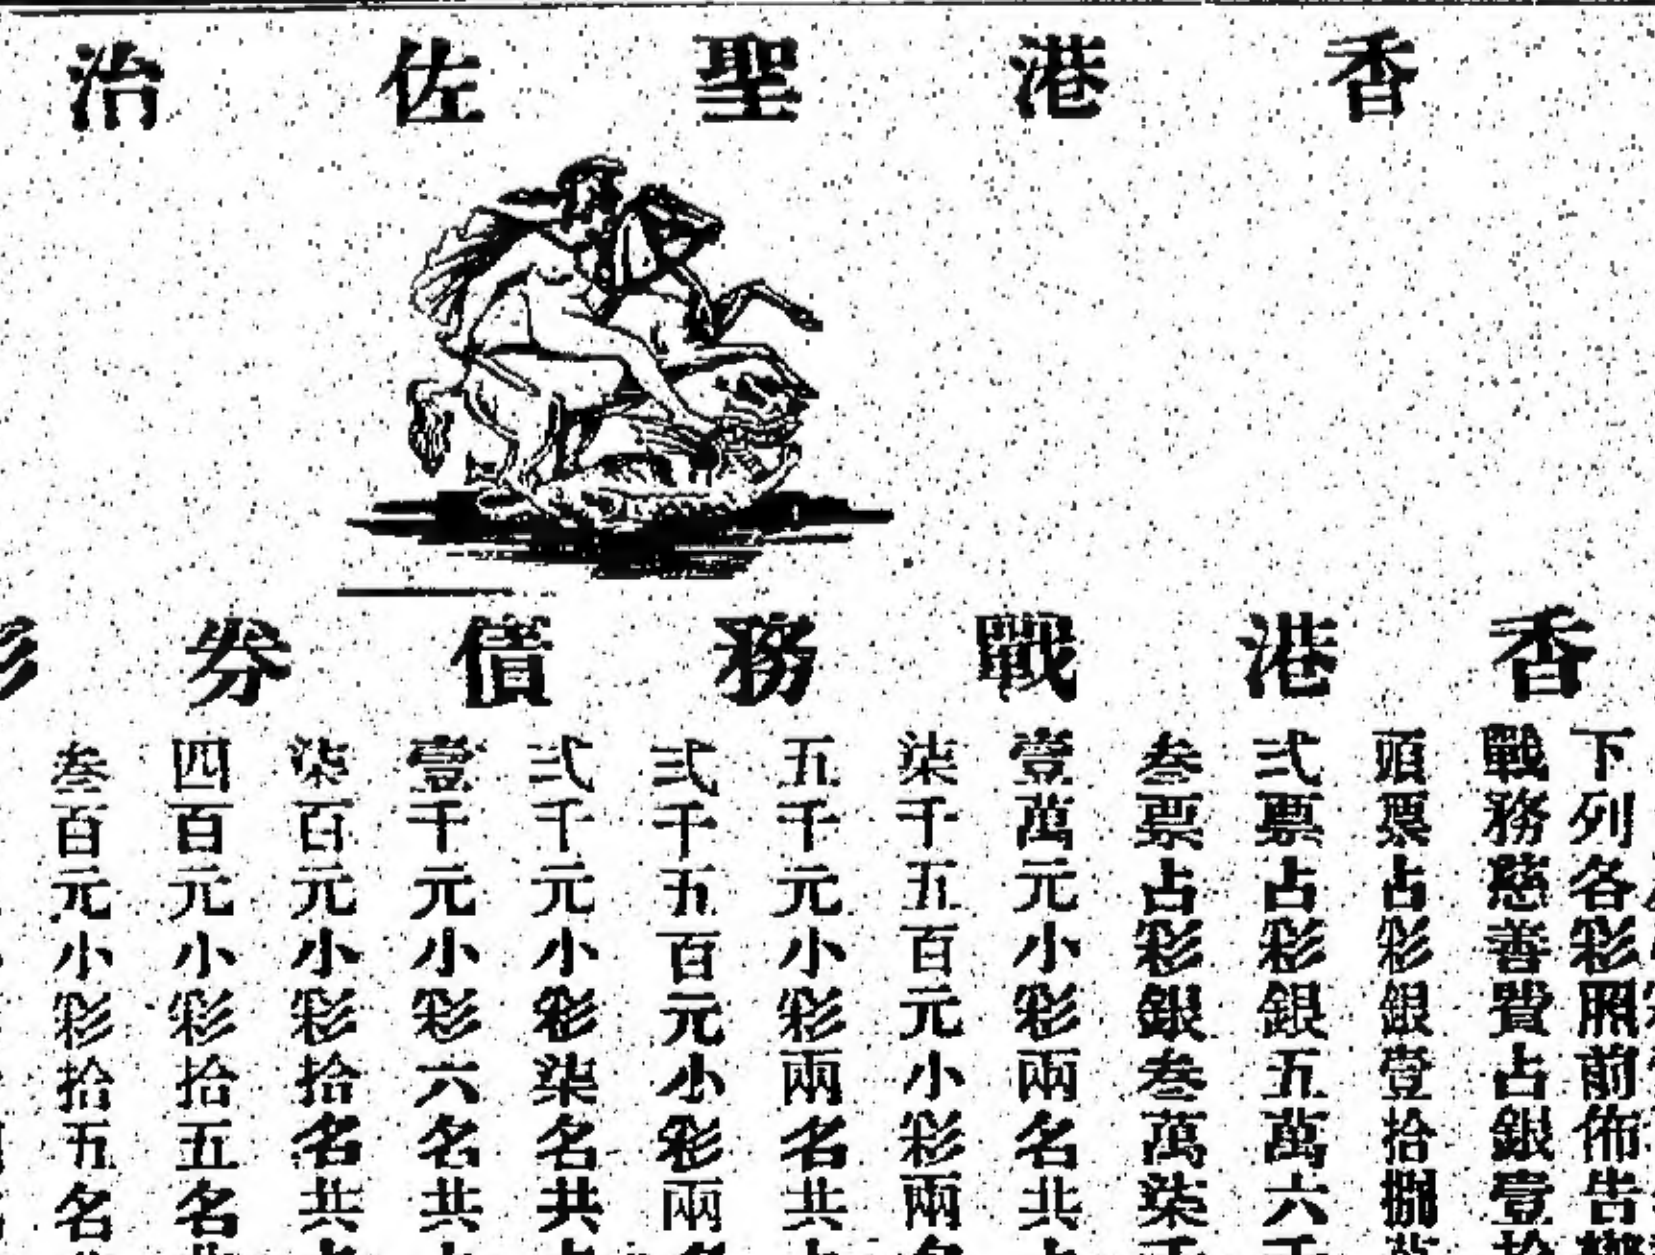 香港聖佐治
香港戰務債券
下列各彩照前佈告
戰務慈善費占銀壹
頭票占彩銀壹拾捌
弍票占彩銀五萬六
叁票占彩銀叁萬柒
壹萬元小彩兩名共
柒千五百元小彩兩
五千元小彩兩名共
弍千五百元小彩兩
弍千元小彩柒名共
壹千元小彩六名共
柒百元小彩拾名共
四百元小彩拾五名
叁百元小彩拾五名